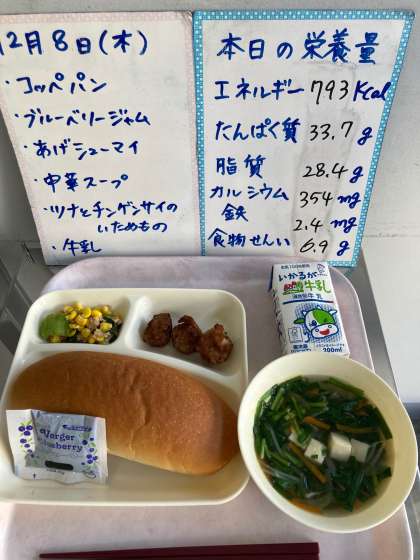 12月8日(木)
・コッペパン
・ブルーベリージャム
・あげシューマイ
・中華スープ
・ツナとチンゲンサイの
いためもの
・牛乳
本日の栄養量
エネルギー 793 Kcal
たんぱく質 33.7 g
脂質 28.4 g
カルシウム 354 mg
鉄 2.4 mg
食物せんい 6.9 g
いかるが
牛乳
200ml
Verger
Blueberry